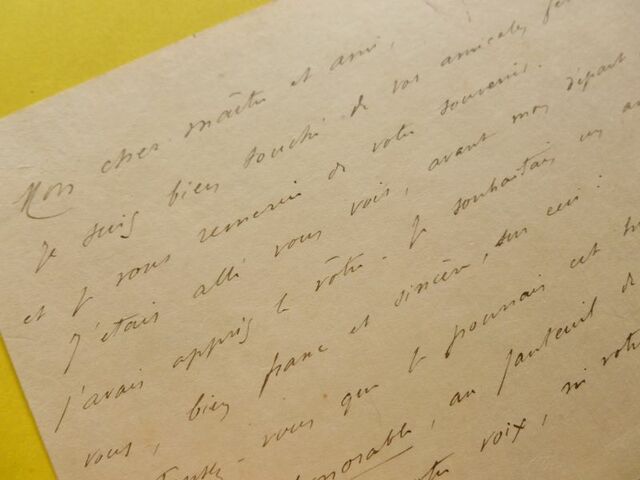 Mon cher maître et ami,
Je suis bien touché de vos amicales
et je vous remercie de votre souvenir.
J'étais allé vous voir, avant mon départ
J'avais appris le vôtre. Je souhaitais un
vous, bien franc et sincère, sur ceci :
vous que je pourrais cet
honorable, au fauteuil de
voix, ni votre